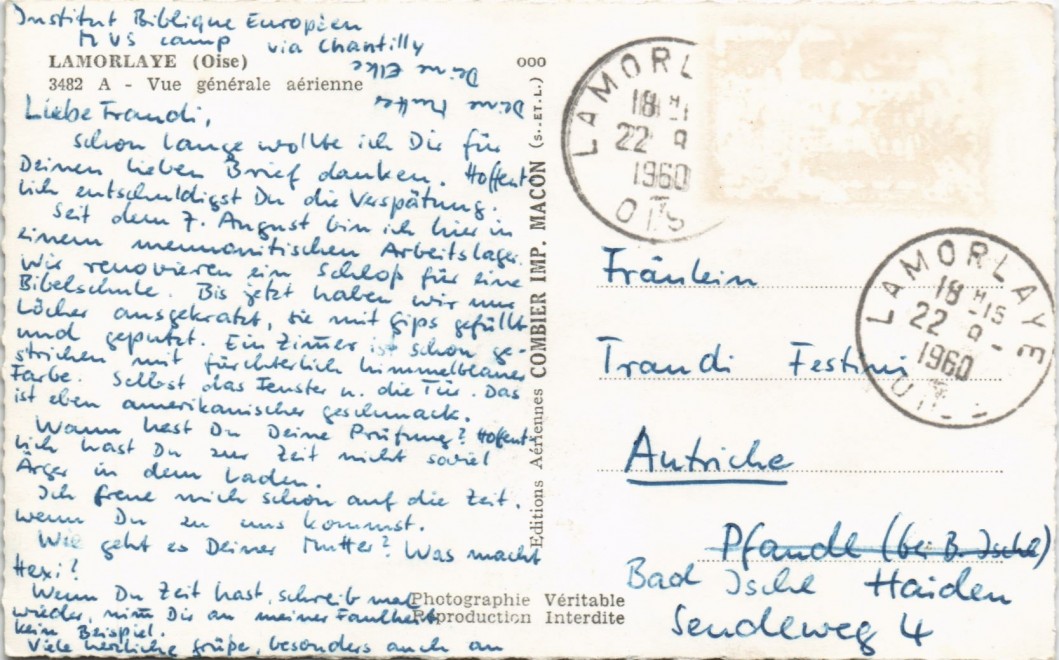 Institut Biblique Européen
MVS camp via Chantilly
LAMORLAYE (Oise)
3482 A - Vue générale aérienne
Liebe Traudi,
schon lange wollte ich Dir für
Deinen lieben Brief danken. Hoffent
lich entschuldigst Du die Verspätung.
Seit dem 7. August bin ich hier in
einem mennonitischen Arbeitslager.
Wir renovieren ein Schloß für eine
Bibelschule. Bis jetzt haben wir nur
Löcher ausgekratzt, sie mit Gips gefüllt
und geputzt. Ein Zimmer ist schon ge-
strichen mit fürchterlich himmelblauer
Farbe. Selbst das Fenster u. die Tür. Das
ist eben amerikanischer Geschmack.
Wann hast Du Deine Prüfung? Hoffent-
lich hast Du zur Zeit nicht soviel
Ärger in dem Laden.
Ich freue mich schon auf die Zeit,
wenn Du zu uns kommst.
Wie geht es Deiner Mutter? Was macht
Hexi?
Wenn Du Zeit hast, schreib mal
wieder, nimm Dir an meiner Faulheit
kein Beispiel.
Viele herzliche Grüße, besonders auch an
Deine Mutter
Deine Elke
ooo
Editions Aériennes COMBIER IMP. MACON (S.-ET-L.)
Photographie Véritable
Reproduction Interdite
LAMORL
18 H
22 - 8
1960
OISE
LAMORLAYE
18 H 15
22 - 8 -
1960
OISE
Fräulein
Traudi Festini
Autriche
Pfandl (bei B. Ischl)
Bad Ischl Haiden
Sendlweg 4